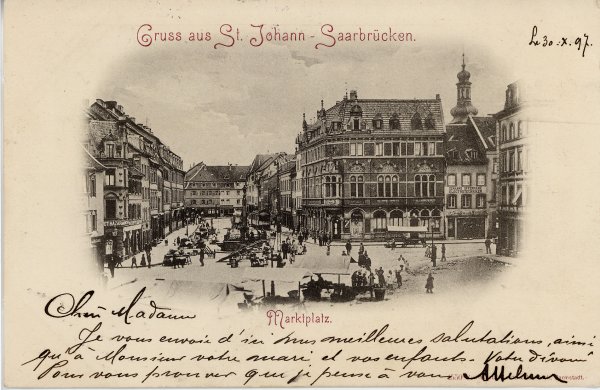 Gruss aus St. Johann-Saarbrücken.
Le 30. X. 97.
Marktplatz.
Chère Madame
Je vous envoie d'ici mes meilleures salutations, ainsi
qu'à Monsieur votre mari et vos enfants. Votre dévoué
Pour vous prouver que je pense à vous